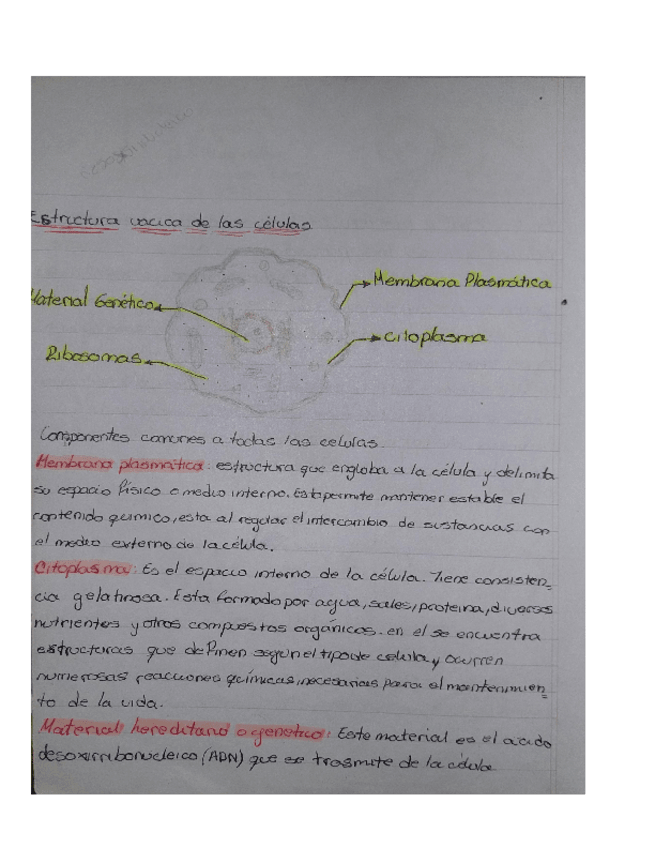 Estructura vacica de las células
Material Genético
Ribosomas
Membrana Plasmática
citoplasma
Componentes comunes a todas las celulas.
Membrana plasmática: estructura que engloba a la célula y delimita
su espacio físico o medio interno. Esta permite mantener estable el
contenido químico, esta al regular el intercambio de sustancias con
el medio externo de la célula.
Citoplasma: Es el espacio interno de la célula. Tiene consisten-
cia gelatinosa. Esta formado por agua, sales, proteina, diversos
nutrientes y otros compuestos orgánicos. en el se encuentra
estructuras que definen segun el tipo de celula, y ocurren
numerosas reacciones químicas, necesarias para el mantenimien-
to de la vida.
Material hereditario o genetico: Este material es el acido
desoxirribonucleico (ADN) que se trasmite de la célula